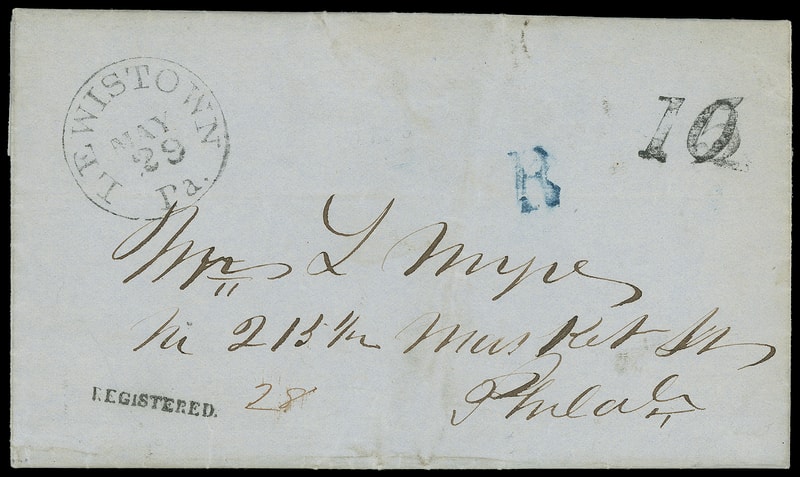 LEWISTOWN
MAY
29
Pa.
10
R
Mrs L Myers
No 215½ Market St
Philada
REGISTERED.
28